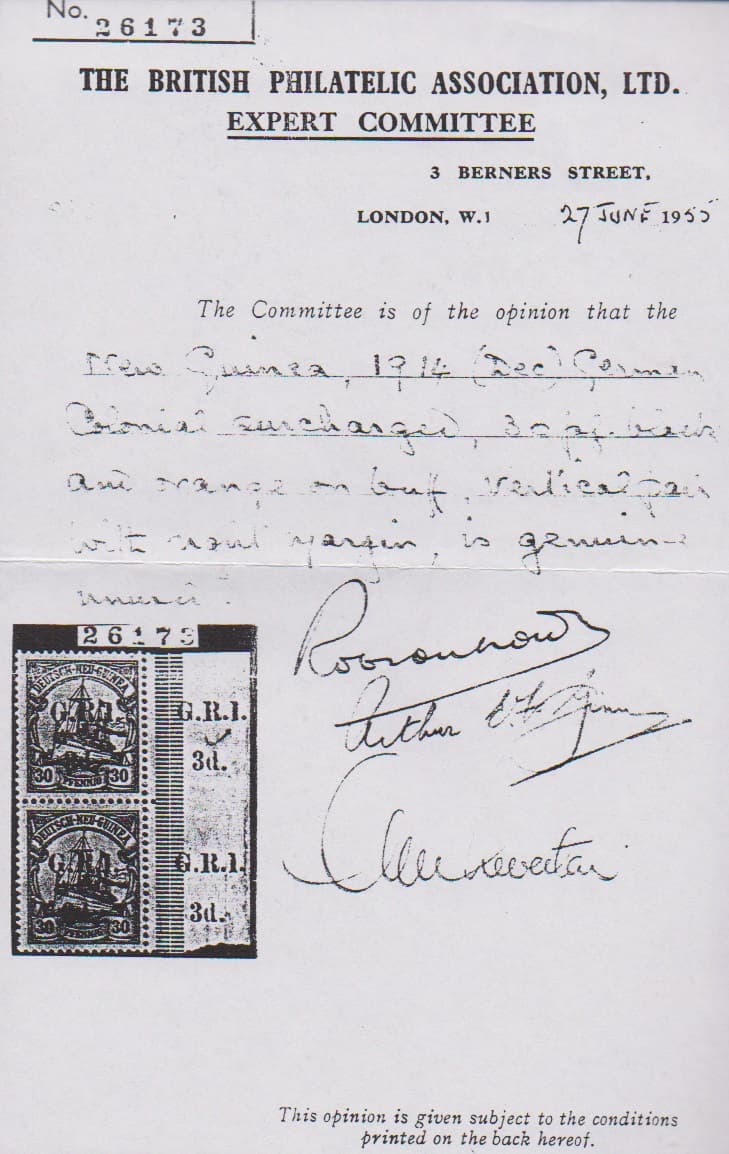 No. 26173
THE BRITISH PHILATELIC ASSOCIATION, LTD.
EXPERT COMMITTEE
3 BERNERS STREET,
LONDON, W.1 27 JUNE 1955
The Committee is of the opinion that the
New Guinea, 1914 (Dec) German
Colonial surcharged, 3d on 30 pf. black
and orange on buff, vertical pair
with margin, is genuine
unused.
26173
DEUTSCH-NEU-GUINEA
G.R.I. G.R.I.
3d.
30 PFENNIG 30
DEUTSCH-NEU-GUINEA
G.R.I. G.R.I.
3d.
30 30
Arthur
This opinion is given subject to the conditions
printed on the back hereof.